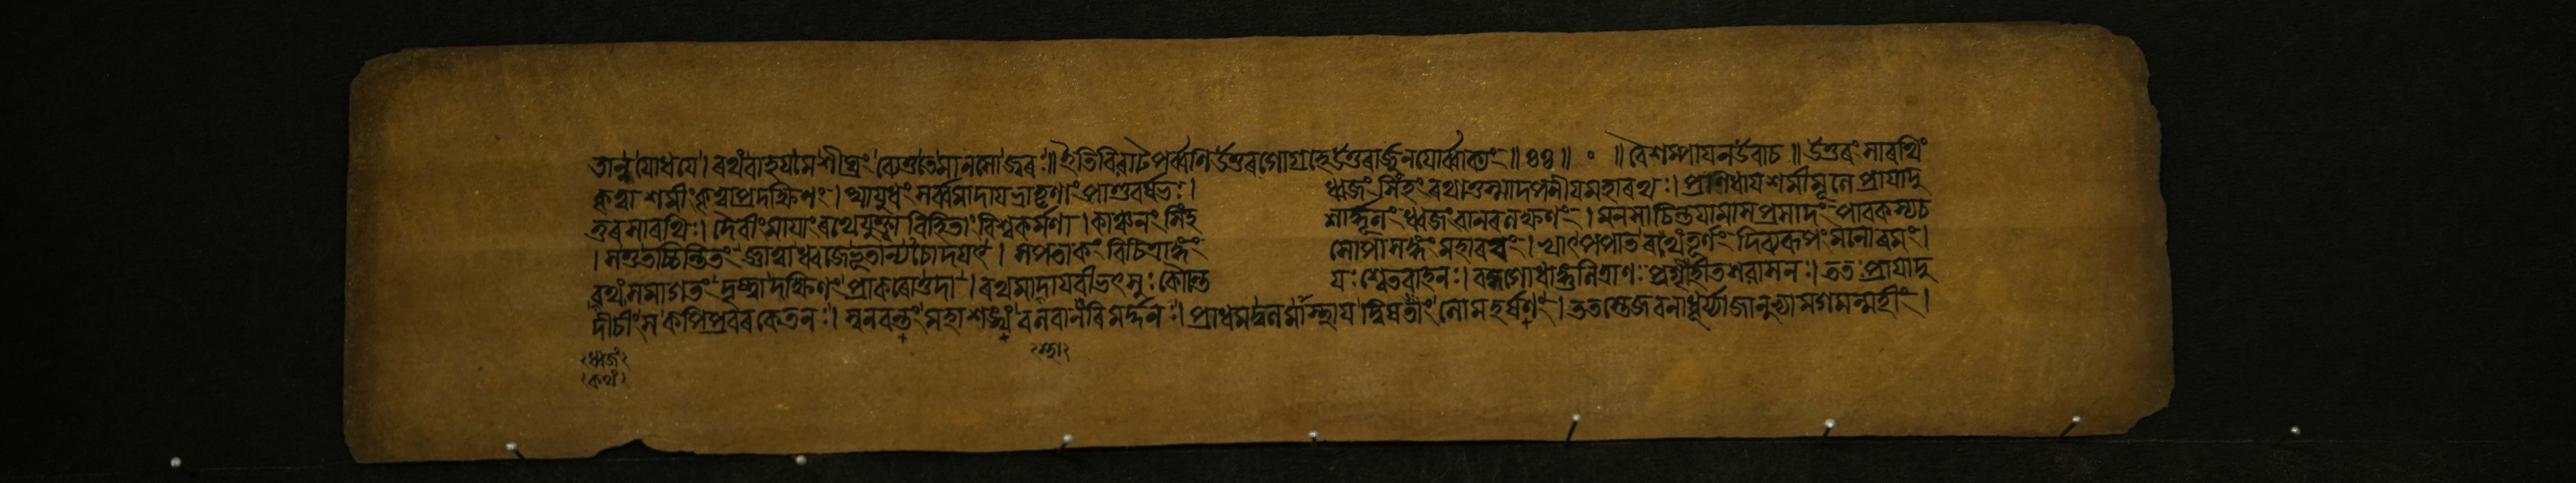 তান্তু যোধযে। ৰথংবাহযমে শীঘ্ৰং ব্যেতুতেমানসোজ্বৰঃ॥ ইতিবিৰাটপৰ্ব্বণি উত্তৰগোগ্ৰহে উত্তৰাৰ্জ্জুনযোৰ্ব্বাক্যং॥ ৪৪॥ ॰ ॥ বৈশম্পাযনউবাচ॥ উত্তৰং সাৰথিং
কৃত্বা শমীং কৃত্বাপ্ৰদক্ষিণং। আযুধং সৰ্ব্বমাদায প্ৰাশুবৰ্ষভঃ। ধ্বজং সিংহং ৰথাত্তস্মাদপনীযমহাৰথঃ। প্ৰণিধাযশমীমূলে প্ৰাযাদু
ত্তৰসাৰথিঃ। দৈবীং মাযাং ৰথেযুক্ত্বা বিহিতাং বিশ্বকৰ্ম্মণা। কাঞ্চনং সিংহ লাঙ্গূলং ধ্বজং বানৰলক্ষণং। মনসা চিন্তযামাস প্ৰসাদং পাবকস্যচ
। সতুতচ্চিন্তিতং জ্ঞাত্বা ধ্বজেভূতান্যচোদযৎ। সপতাকং বিচিত্ৰাঙ্গং সোপাসঙ্গং মহাৰবং। খাৎপপাত ৰথেতূৰ্ণং দিব্যৰূপং মনোৰমং।
ৰথং সমাগতং দৃষ্ট্বা দক্ষিণং প্ৰাকৰোত্তদা। ৰথমাদাযবীভৎসুঃ কৌন্তে যঃ শ্বেতবাহনঃ। বদ্ধগোধাঙ্গুলিত্ৰাণঃ প্ৰগৃহীতশৰাসনঃ। ততঃ প্ৰাযাদু
দীচীং স কপিপ্ৰবৰকেতনঃ। স্বনবন্তং মহাশঙ্খং বলবানৰিমৰ্দ্দনঃ। প্ৰাধমদ্বলমাস্থায দ্বিষতাং লোমহৰ্ষণং। ততস্তেজবনাধুৰ্য্যা জানুভ্যামগমন্মহীং।
ধ্বজং
কথং